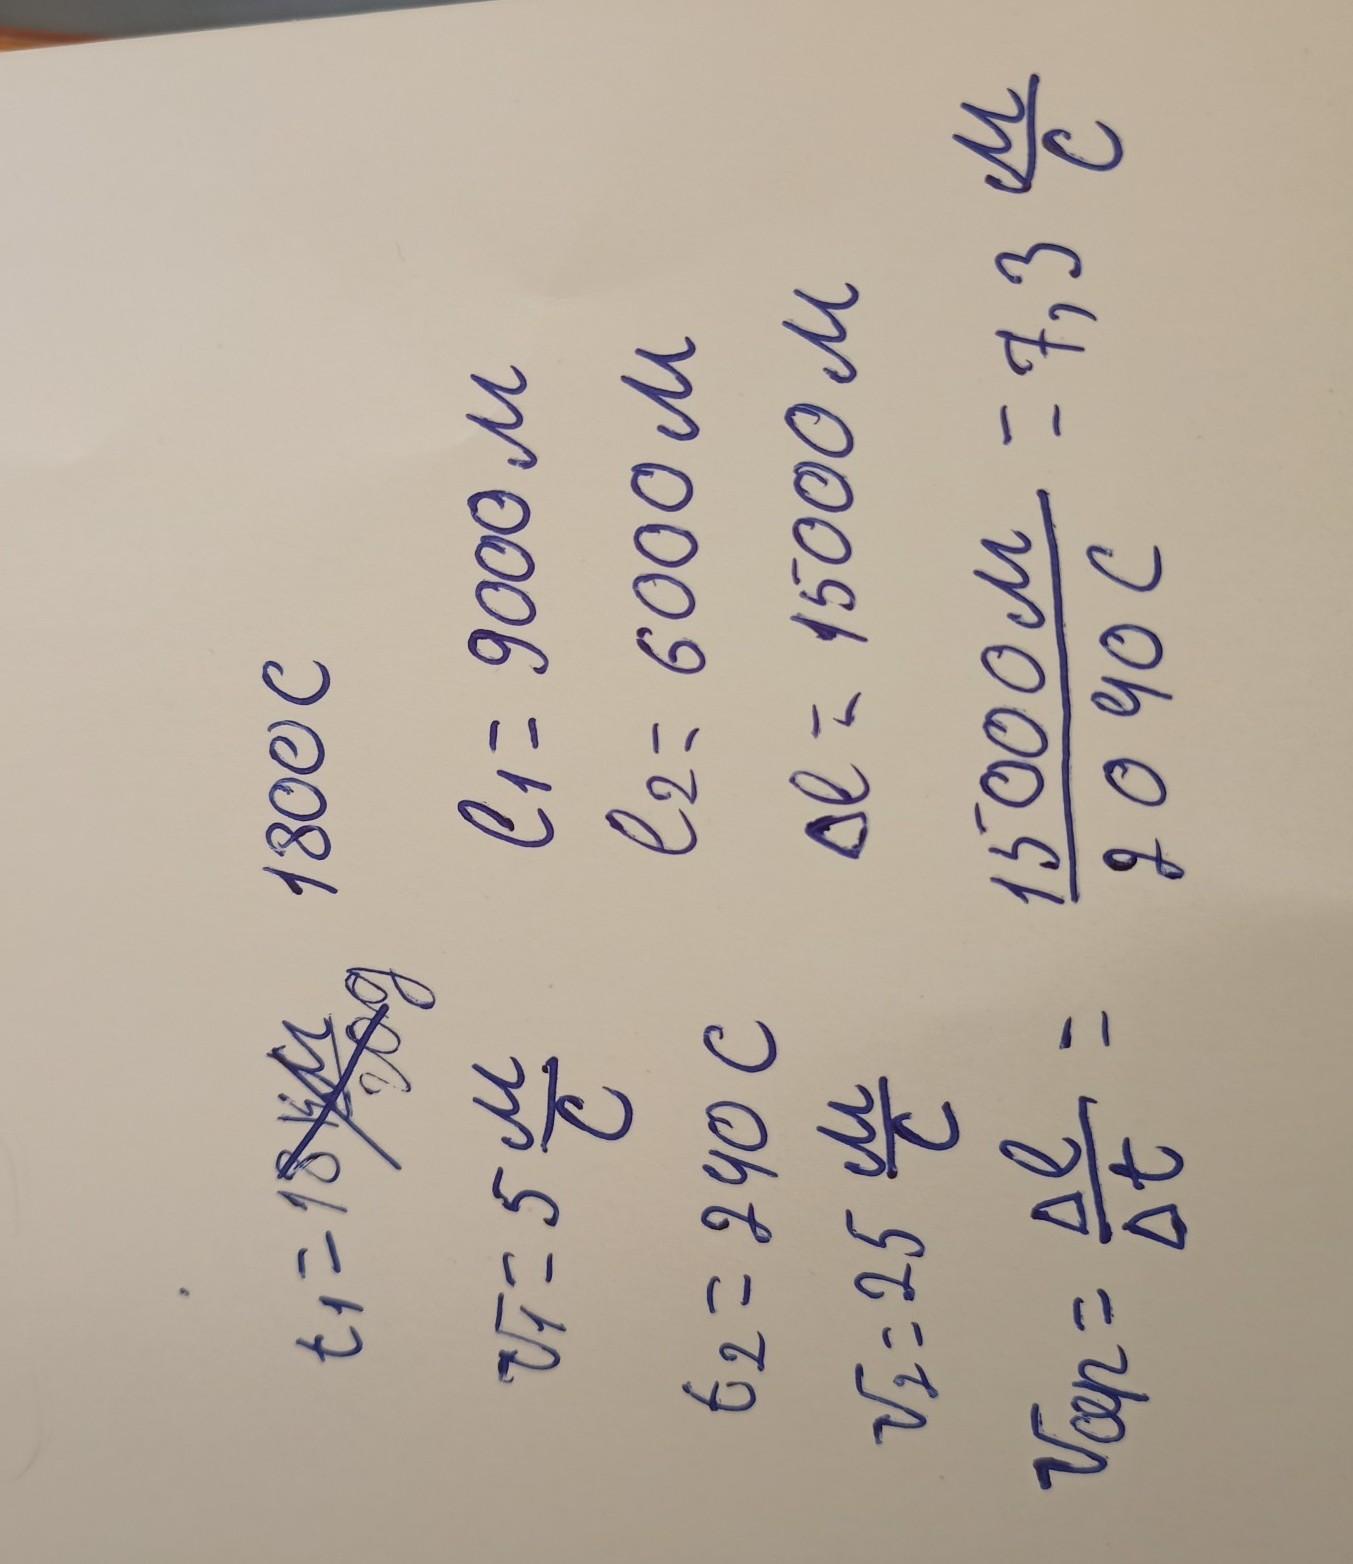 t₁ = 18 1800 с
v₁ = 5 м/с l₁ = 9000 м
t₂ = 240 с l₂ = 6000 м
v₂ = 25 м/с Δl = 15000 м
vср = Δl/Δt = 15000 м/2040 с = 7,3 м/с